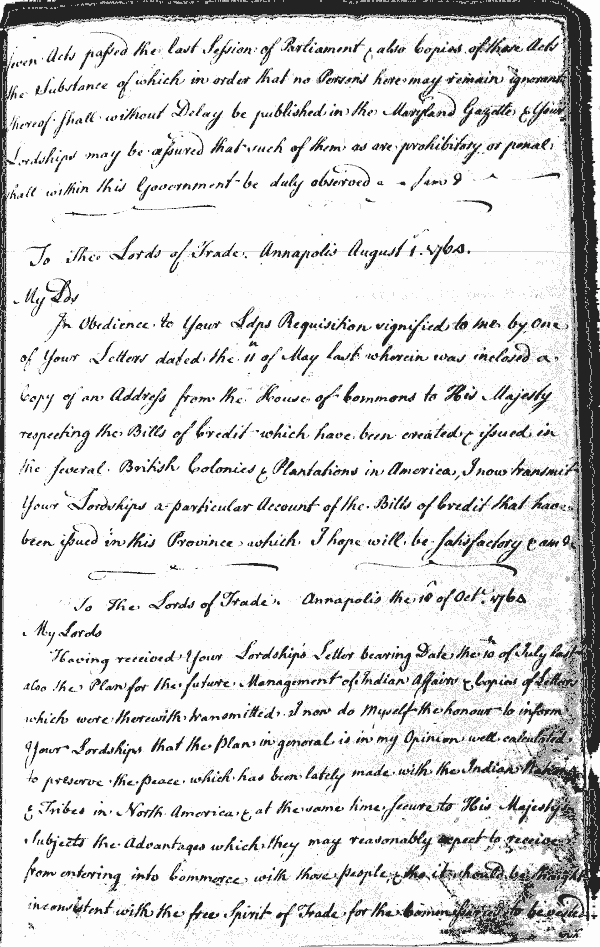 seven Acts passed the last Session of Parliament & also Copies of those Acts
the Substance of which in order that no Persons here may remain ignorant
thereof shall without Delay be published in the Maryland Gazette & Your
Lordships may be assured that such of them as are prohibitory or penal
shall within this Government be duly observed I am &
To the Lords of Trade. Annapolis August 1. 1764.
My Lds
In Obedience to Your Ldps Requisition signified to me by One
of Your Letters dated the 11th of May last wherein was inclosed a
Copy of an Address from the House of Commons to His Majesty
respecting the Bills of Credit which have been created & issued in
the several British Colonies & Plantations in America, I now transmit
Your Lordships a particular Account of the Bills of Credit that have
been issued in this Province which I hope will be satisfactory & am &
To the Lords of Trade. Annapolis the 18th of Octr. 1764
My Lords
Having received Your Lordships Letter bearing Date the 10th of July last
also the Plan for the future Management of Indian Affairs & Copies of Letters
which were therewith transmitted. I now do myself the honour to inform
Your Lordships that the Plan in general is in my Opinion well calculated
to preserve the peace which has been lately made with the Indian Nations
& Tribes in North America & at the same time secure to His Majesty's
Subjects the Advantages which they may reasonably expect to receive
from entering into Commerce with those people, & tho it should be thought
inconsistent with the free Spirit of Trade for the Commissaries to be vested